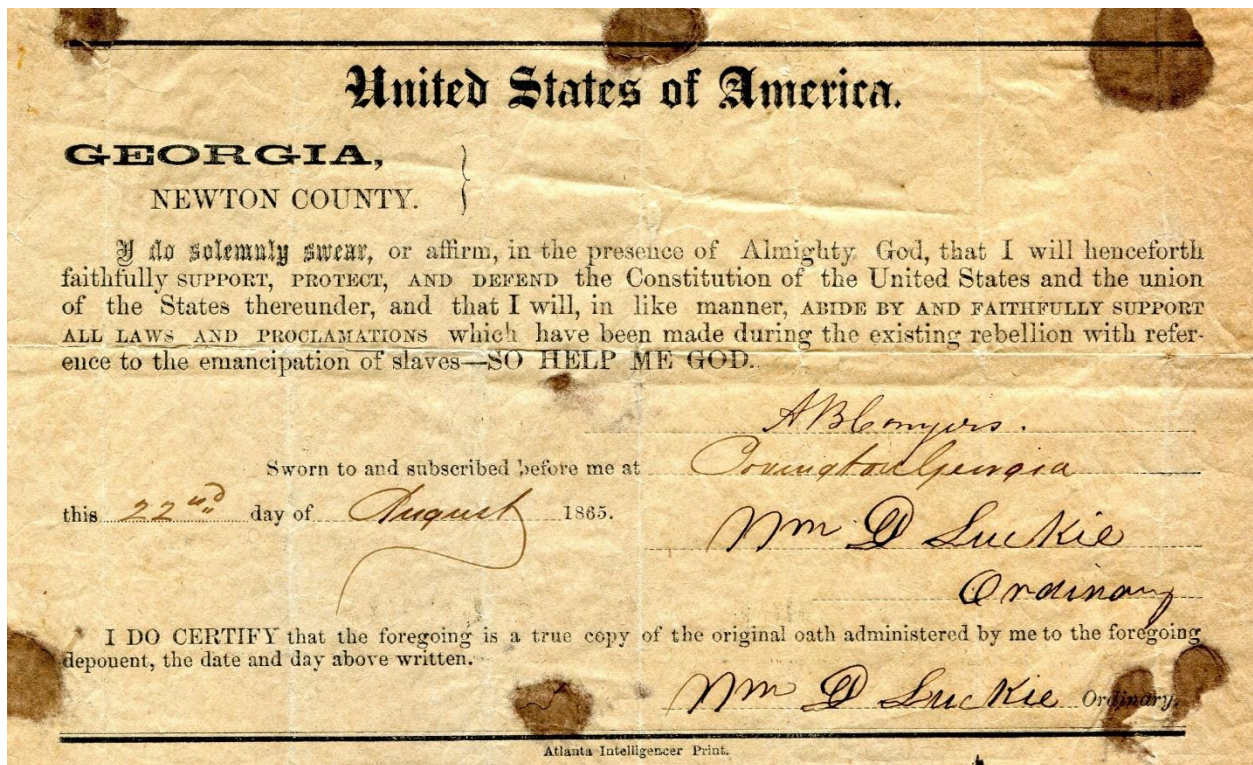 United States of America.
GEORGIA,
NEWTON COUNTY.
I do solemnly swear, or affirm, in the presence of Almighty God, that I will henceforth
faithfully SUPPORT, PROTECT, AND DEFEND the Constitution of the United States and the union
of the States thereunder, and that I will, in like manner, ABIDE BY AND FAITHFULLY SUPPORT
ALL LAWS AND PROCLAMATIONS which have been made during the existing rebellion with refer-
ence to the emancipation of slaves—SO HELP ME GOD.
A B Conyers.
Sworn to and subscribed before me at Covington Georgia
this 22nd day of August 1865.
Wm D Luckie
Ordinary
I DO CERTIFY that the foregoing is a true copy of the original oath administered by me to the foregoing
deponent, the date and day above written.
Wm D Luckie Ordinary.
Atlanta Intelligencer Print.